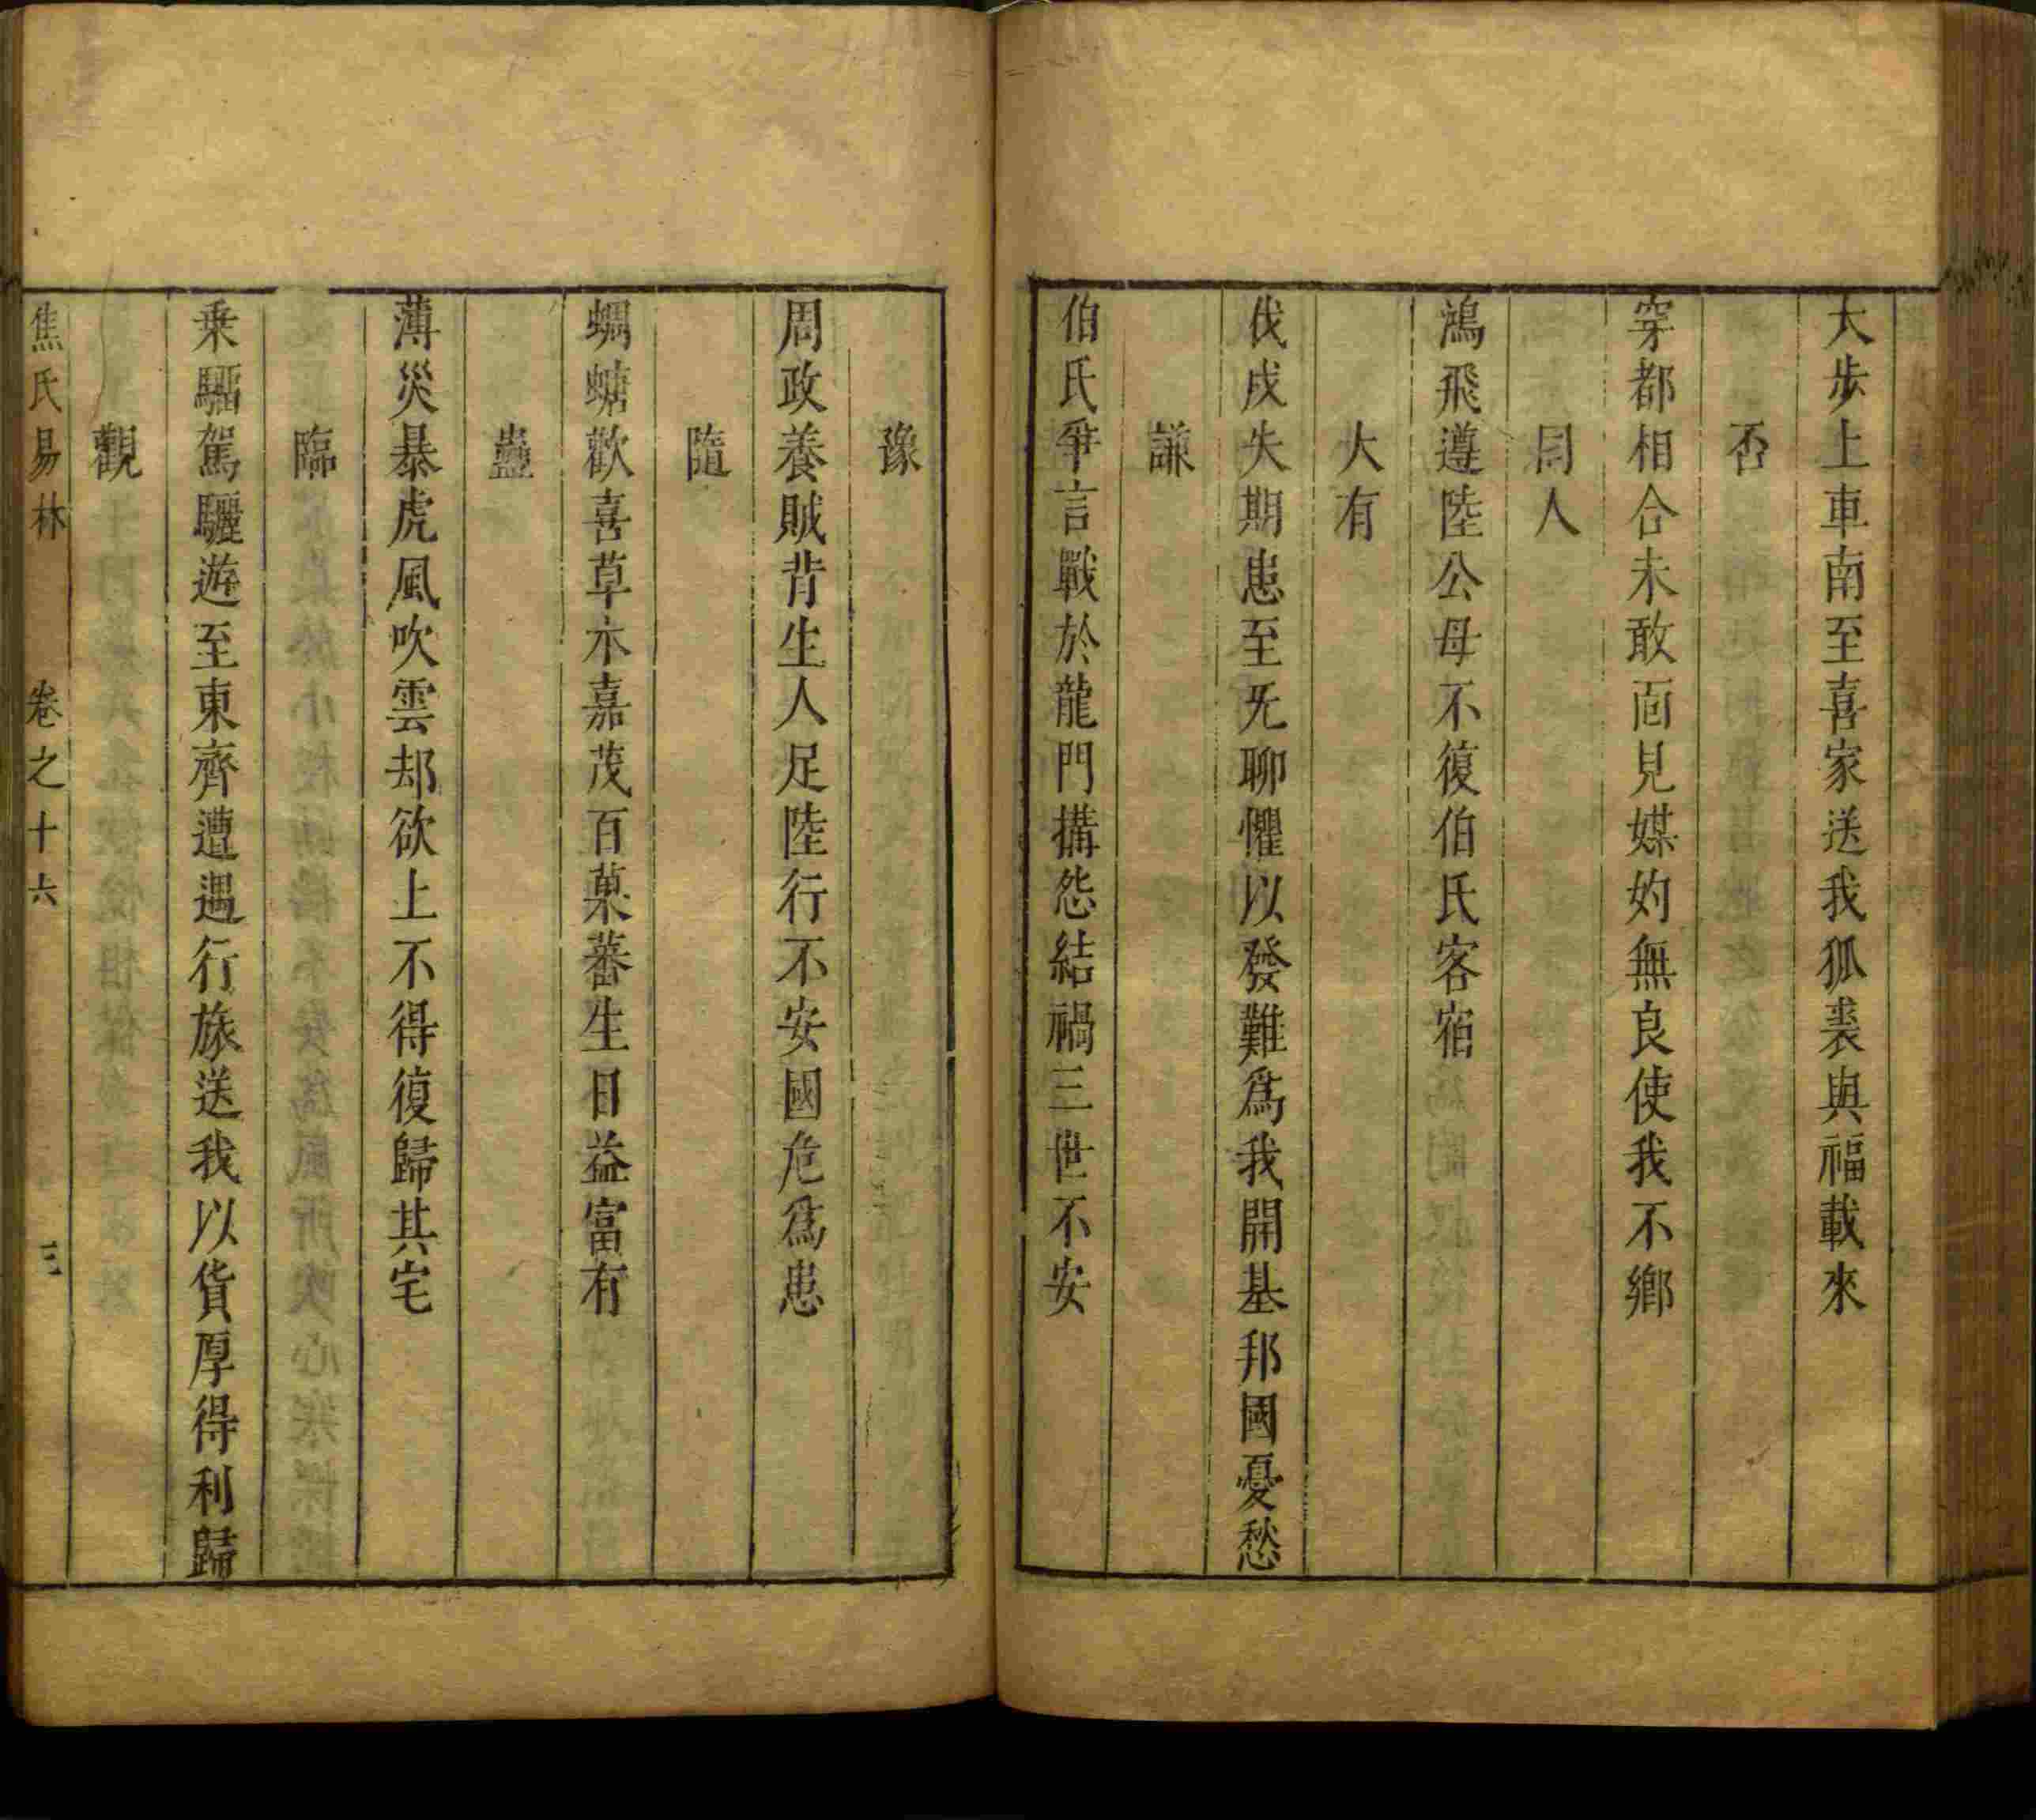 大步上車南至喜家送我狐裘與福載來
否
穿都相合未敢面見媒妁無良使我不鄉
同人
鴻飛遵陸公母不復伯氏客宿
大有
伐戍失期患至无聊懼以發難爲我開基邦國憂愁
謙
伯氏爭言戰於龍門搆怨結禍三世不安
豫
周政養賊背生人足陸行不安國危爲患
隨
蜩螗歡喜草木嘉茂百菓蕃生日益富有
蠱
薄災暴虎風吹雲却欲上不得復歸其宅
臨
乗騮駕驪遊至東齊遭遇行旅送我以貨厚得利歸
觀
焦氏易林 卷之十六 三